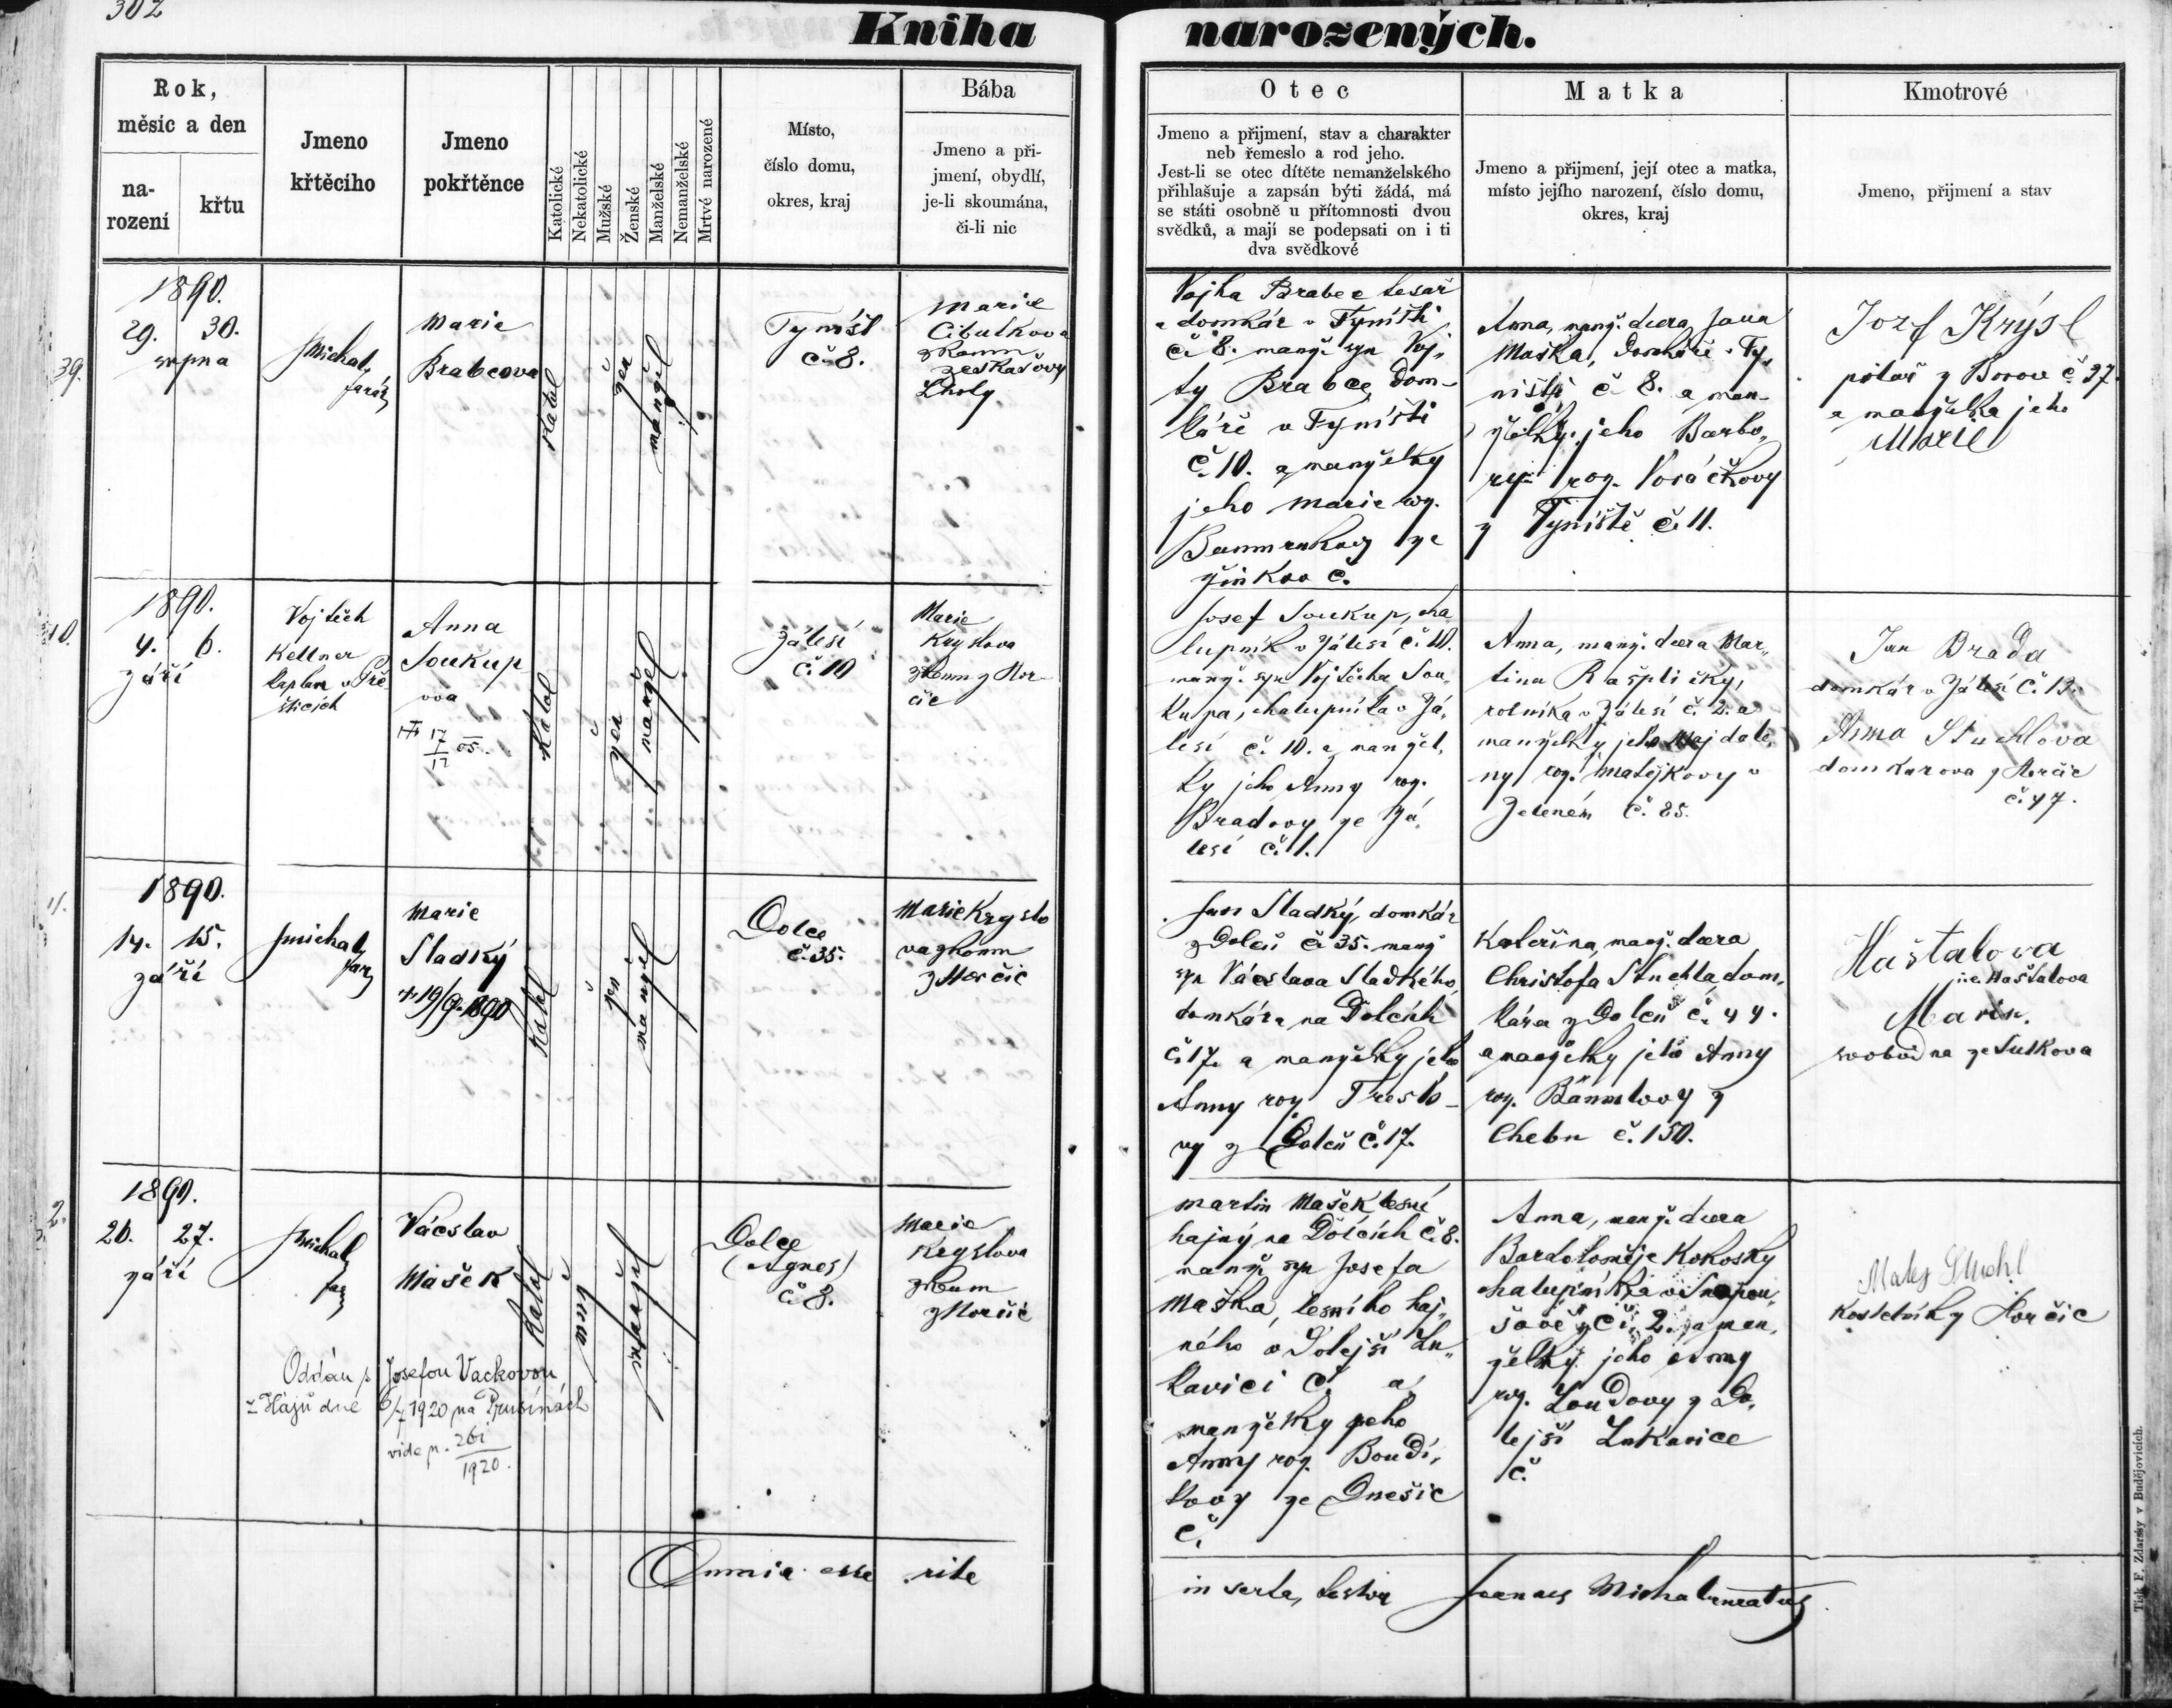 302
Kniha narozených.
Rok,
měsíc a den
na-
rození
křtu
Jmeno
křtěcího
Jmeno
pokřtěnce
Katolické
Nekatolické
Mužské
Ženské
Manželské
Nemanželské
Mrtvé narozené
Místo,
číslo domu,
okres, kraj
Bába
Jmeno a při-
jmení, obydlí,
je-li skoumána,
či-li nic
Otec
Jmeno a přijmení, stav a charakter
neb řemeslo a rod jeho.
Jest-li se otec dítěte nemanželského
přihlašuje a zapsán býti žádá, má
se státi osobně u přítomnosti dvou
svědků, a mají se podepsati on i ti
dva svědkové
Matka
Jmeno a přijmení, její otec a matka,
místo jejího narození, číslo domu,
okres, kraj
Kmotrové
Jmeno, přijmení a stav
39.
1890.
29. 30.
srpna
Michal,
farář
Marie
Brabcova
Katol
žen
manžel
Tyništ
č. 8.
Marie
Cibulkova
zkoum
Lhoty
Vojta Brabec tesař
a domkár v Tyništi
č. 8. manž. syn Voj-
ty Brabce, dom-
káře v Tyništi
č. 10. a manželky
jeho Marie roz.
ze
Žinkov č.
Anna, manž. dcera Jana
Maška, domkáře v Ty-
ništi č. 8. a man-
želky jeho Barbo-
ry roz. Vosáčkovy
z Tyniště č. 11.
Jozf Krýsl
pilař z Borov č. 37.
a manželka jeho
Marie
1890.
4. 6.
září
Vojtěch
Kellner
kaplan v Pře-
šticích
Anna
Soukup
ova
17/12 05.
Katol
žen
manžel
Zálesí
č. 10
Marie
Kryslova
zkoum z Hor-
čic
Josef Soukup, cha-
lupník v Zálesí č. 10.
manž. syn Vojtěcha Sou-
kupa, chalupníka v Zá-
lesí č. 10. a manžel-
ky jeho Anny roz.
Bradovy ze Zá-
lesí č. 1.
Anna, manž. dcera Mar-
tina Rašpličky,
rolníka v Zálesí č. 2. a
manželky jeho Majdale-
ny roz. Matějkovy v
Zeleném č. 85.
Jan Brada
domkár v Zálesí č. 13.
Anna Stuchlova
domkarova z Horčic
č. 47.
1890.
14. 15.
září
Michal,
far
Marie
Sladký
+ 19/9. 1890
Katol
žen
manžel
Dolce
č. 35.
Marie Kryslo
va zkoum
z Horčic
Jan Sladký, domkár
z Dolců č. 35. manž
syn Václava Sladkého,
domkára na Dolcích
č. 17. a manželky jeho
Anny roz. Treslo-
vy z Dolců č. 17.
Kateřina, manž. dcera
Christofa Stuchla, dom-
kára z Dolců č. 44.
a manželky jeho Anny
roz. Bäumlovy z
Chebu č. 150.
Haštalova
Haštalova
Marie.
svobodna ze Lukova
1890.
26. 27.
září
Michal,
far
Vácslav
Mašek
Katol
muž
manžel
Dolce
(Agnes)
č. 8.
Marie
Kryslova
zkoum
z Horčic
Oddán s Josefou Vackovou,
z Hájů dne 6/7 1920 na Prusínách
vide p. 261/1920.
Martin Mašek, lesní
hajný na Dolcích č. 8.
manž. syn Josefa
Maška, lesního haj-
ného v Dolejší Lu-
kavici č. a
manželky jeho
Anny roz. Boudí-
kovy ze Dnešic
č.
Anna, manž. dcera
Bardoloměje Kokošky
chalupníka v
č. 2. a man-
želky jeho Anny
roz. Loudovy z Do-
lejší Lukavice
č.
Matěj Stuchl
kostelník z Horčic
Omnia esse rite
inserta, testor Joannes Michal
Tisk F. Zdarssy v Budějovicích.